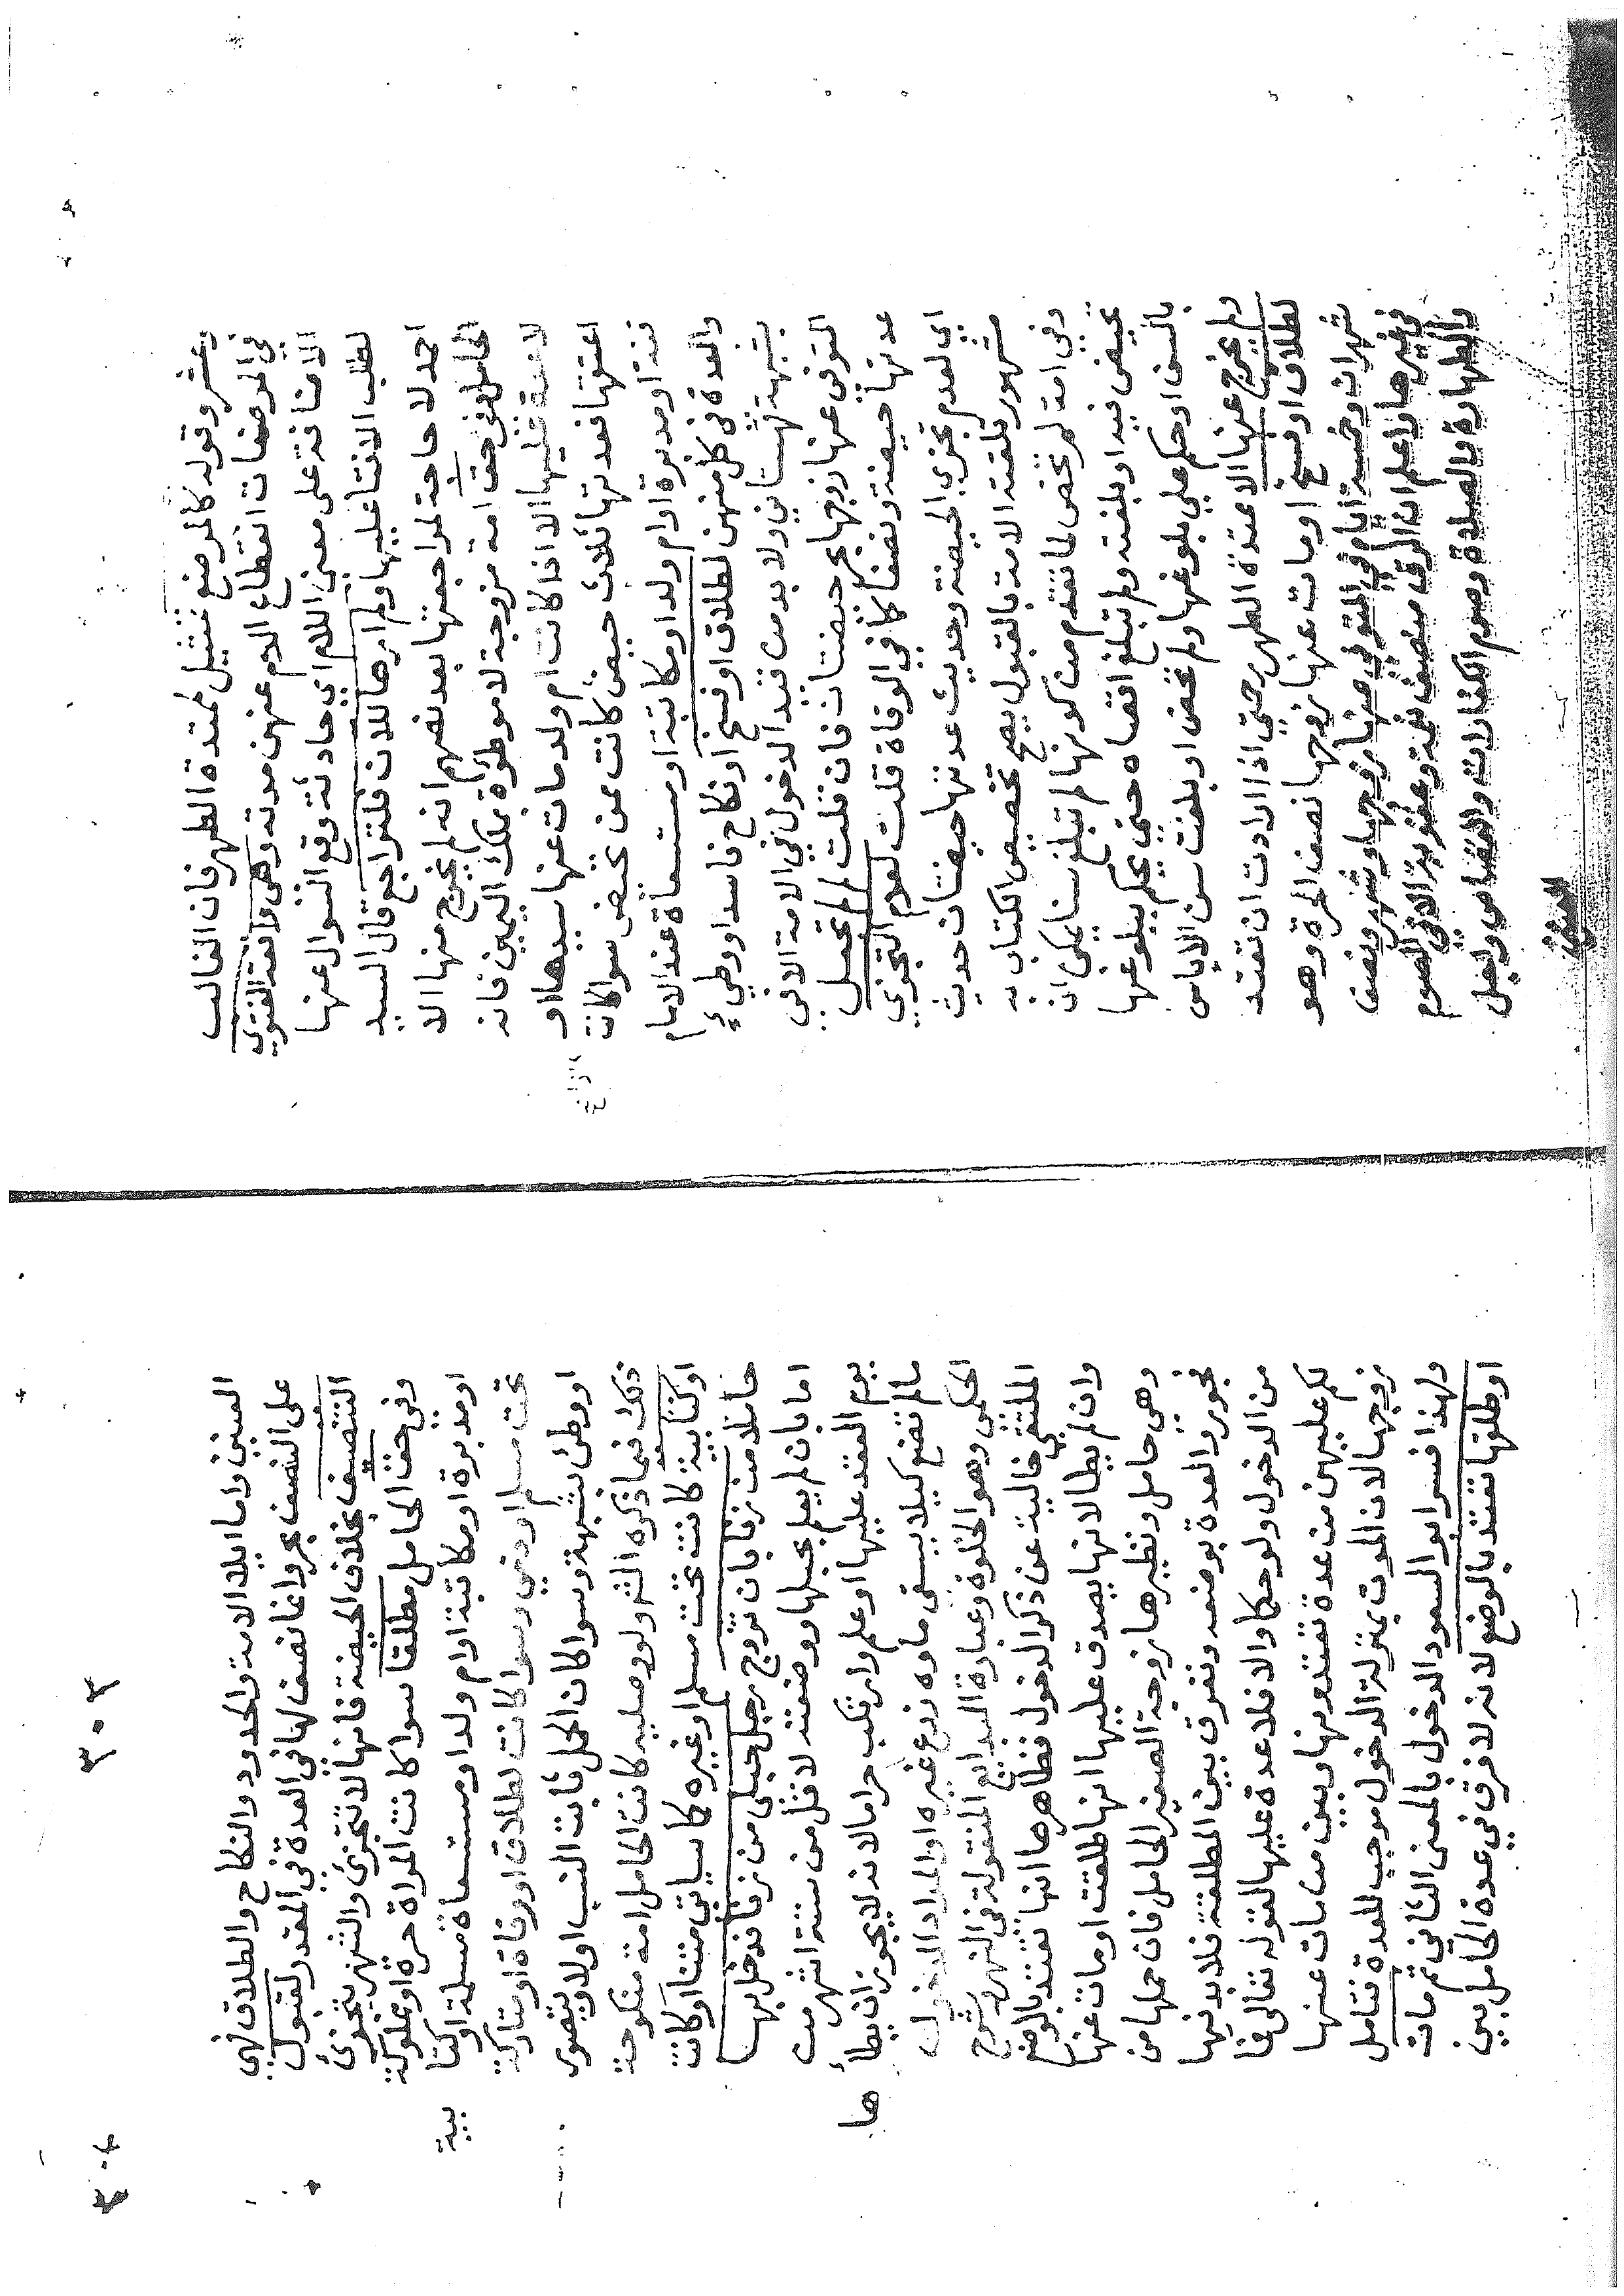 وعشر وقوله كالمرضع تمثيل لممتدة الطهر فان الغالب
في المرضعات انقطاع الدم عنهن مدته وهي واقعة الفتوي
الاضافة على معنى اللام اي حادثة وقع السؤال عنها
لطلب الافتا عليها ولم ارها للان فلتراجع قال السيد
احمد لا حاجة لمراجعتها بعد نصهم انه لم يخرج منها الا
الحامل وفي حق امة مزوجة لا موطؤة بملك اليمين فانه
لا عدة عليها الا اذا كانت ام ولد مات عنها سيدها او
اعتقها فعدتها ثلاث حيض كانت ممن تحيض سوا كانت
قنة او مدبرة او ام ولد او مكاتبة او مستسعاة عند الامام
والعدة في كل منهن لطلاق او فسخ او نكاح فاسد او وطيء
بشبهة نهستاني ولا بد من قيد الدخول في الامة الا في
المتوفى عنها زوجها بحر حيضتان فان قلت لم لم تجعل
عدتها حيضة ونصفا كما في الوفاة قلت لعدم التجزي
اي لعدم تجزي الحيضة وحديث عدتها حيضتان حديث
مشهور تلقته الامة بالقبول يصح تخصيص الكتاب به
وفي امة لم تحض لما تقدم من كونها لم تبلغ سنا يمكن ان
تحيض فيه او بلغته ولم تبلغ اقصاه حتى يحكم ببلوغها
بالسن او حكم علي بلوغها ولم تحض او بلغت سن الاياس
ولم يخرج عنها الا ممتدة الطهر حتي اذا ارادت ان تعتد
لطلاق او فسخ او مات عنها زوجها نصف الحرة وهو
شهران وخمسة ايام في المتوفي عنها زوجها وشهر ونصف
في غيرها واعلم ان الرق منصف نعمة وعقوبة الا في الصوم
والطهارة والصلاة وصوم الكفارات والقصاص واجل
العنين
٣٠٢
العنين واما ايلاء الامة والحدود والنكاح والطلاق فهي
على النصف بحر وانما نصف لها في العدة في المقدر لقبول
التنصيف بخلاف الحيضة فانها لا تتجزئ والشهر يتجزئ
وفي حق الحامل مطلقا سوا كانت المراة حرة او مملوكة
او مدبرة او مكاتبة او ام ولد او مستسعاة مسلمة او كتا
بية
تحت مسلم او ذمي وسوا كانت لطلاق او وفاة او متاركة
او وطئ بشبهة وسوا كان الحمل ثابت النسب او لا ويتصور
ذلك فيما ذكره الشر ولو وصلية كانت الحامل امة منكوحة
او كتابية كانت تحت مسلم او غيره كما سياتي متنا او كانت
حاملا من زنا بان تزوج رجل حبلى من زنا فدخل بها
اما بان لم يعلم بحبلها ووضعته لاقل من ستة اشهر من
يوم العقد عليها او علم وارتكب حراما لانه لا يجوز ان يطأ
ها
مالم تضع كيلا يسقى ماؤه زرع غيره او المراد الدخول
الحكمي وهو الخلوة وعبارة البدايع المنقولة في النهر وشرح
الملتقي خالية عن ذكر الدخول فظاهرها انها تعتد بالوضع
وان لم يطا لانها يصدق عليها انها طلقت او مات عنها
وهي حامل ونظيرها زوجة الصغير الحامل فان حملها من
فجور والعدة بوضعه ونفرق بين المطلقة فلا بد فيها
من الدخول ولو حكما والا فلا عدة عليها لقوله تعالى فما
لكم عليهن من عدة تعتدونها وبين من مات عنها
زوجها لان الموت بمنزلة الدخول موجب للعدة فتامل
ولهذا فسر ابو السعود الدخول بالمعنى الثاني ثم مات
او طلقها تعتد بالوضع لانه لا فرق في عدة الحامل بين